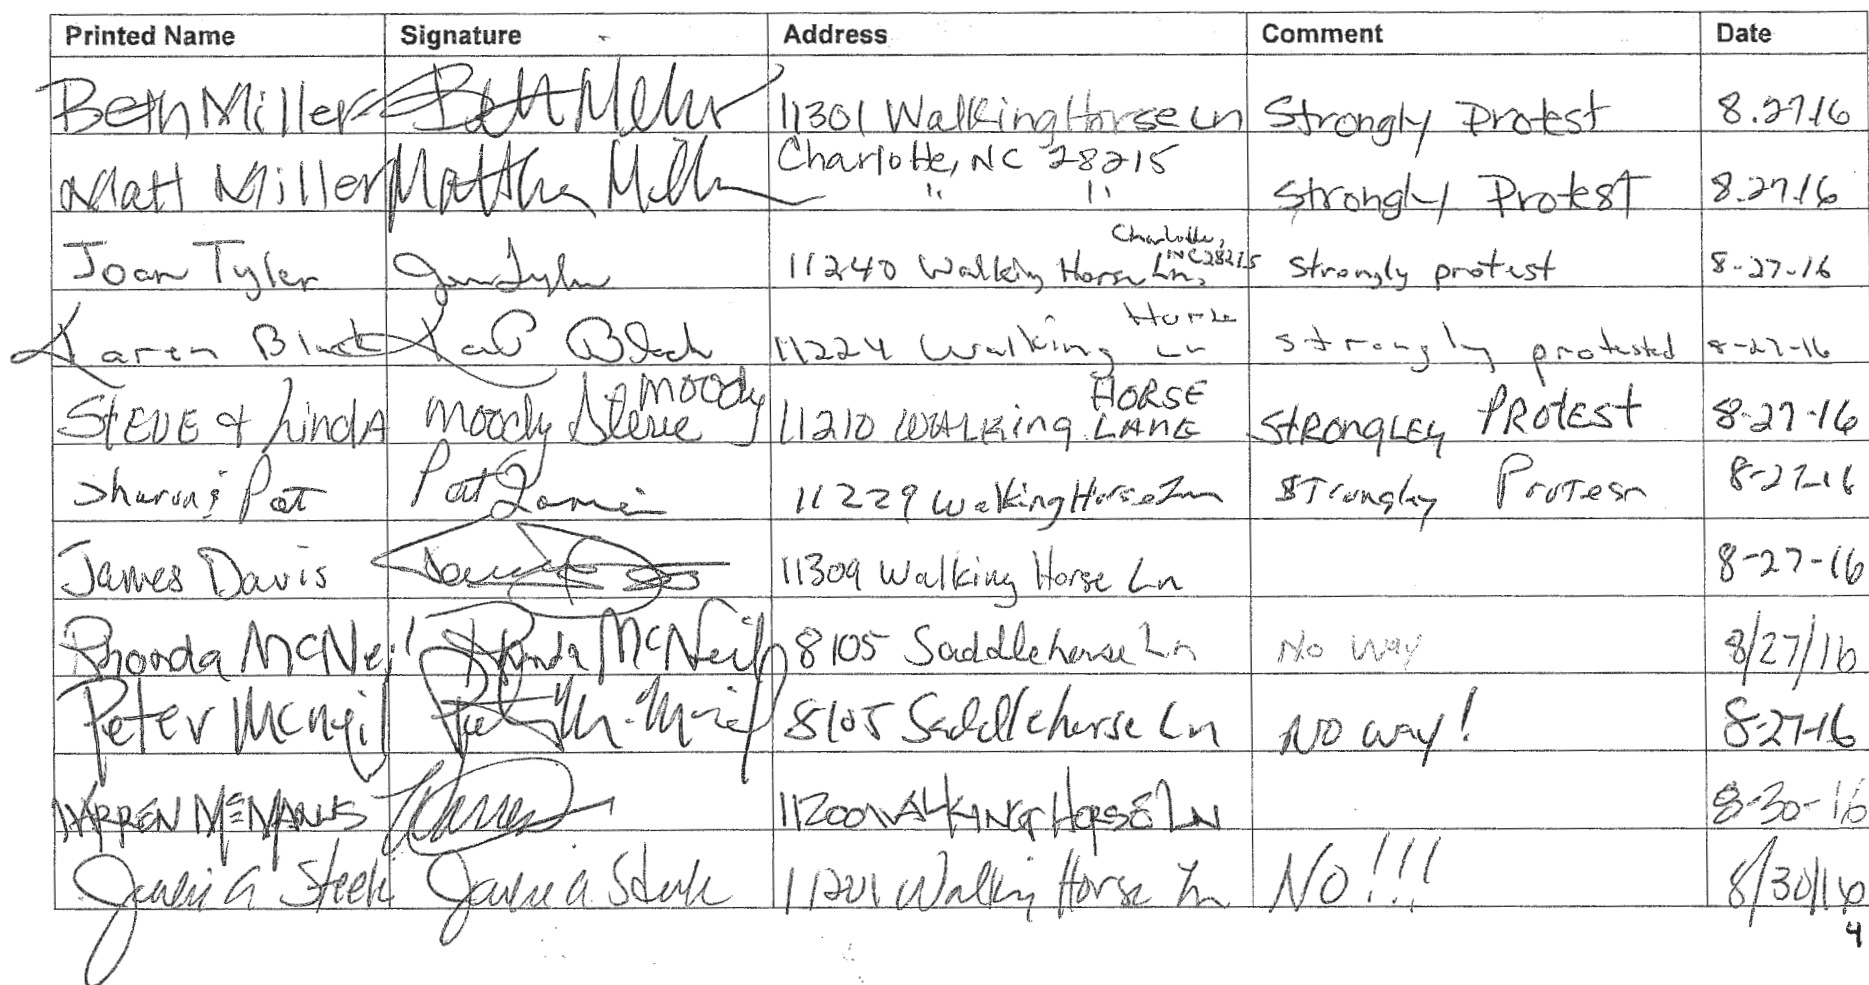 Printed Name Signature Address Comment Date
Beth Miller Beth Miller 11301 Walking Horse Ln Strongly Protest 8.27.16
Charlotte, NC 28215
Matt Miller Matthew Miller " " Strongly Protest 8.27.16
Charlotte,
NC 28215
Joan Tyler Joan Tyler 11240 Walking Horse Ln, Strongly protest 8-27-16
Horse
Karen Black Black 11224 Walking Ln strongly protested 8-27-16
HORSE
STEVE & LindA Moody Steve Moody 11210 WALKing LANE STRONGLEY PROTEST 8-27-16
Sharon & Pat Pat 11229 Walking Horse Ln Strongley Protest 8-27-16
James Davis 11309 Walking Horse Ln 8-27-16
Rhonda McNeil Rhonda McNeil 8105 Saddlehorse Ln No way 8/27/16
Peter McNeil 8105 Saddlehorse Ln NO way! 8-27-16
WARREN McMANUS 11200 WALKING HORSE LN 8-30-16
A Steele A Steele 11201 Walking Horse Ln NO!!! 8/30/16
4